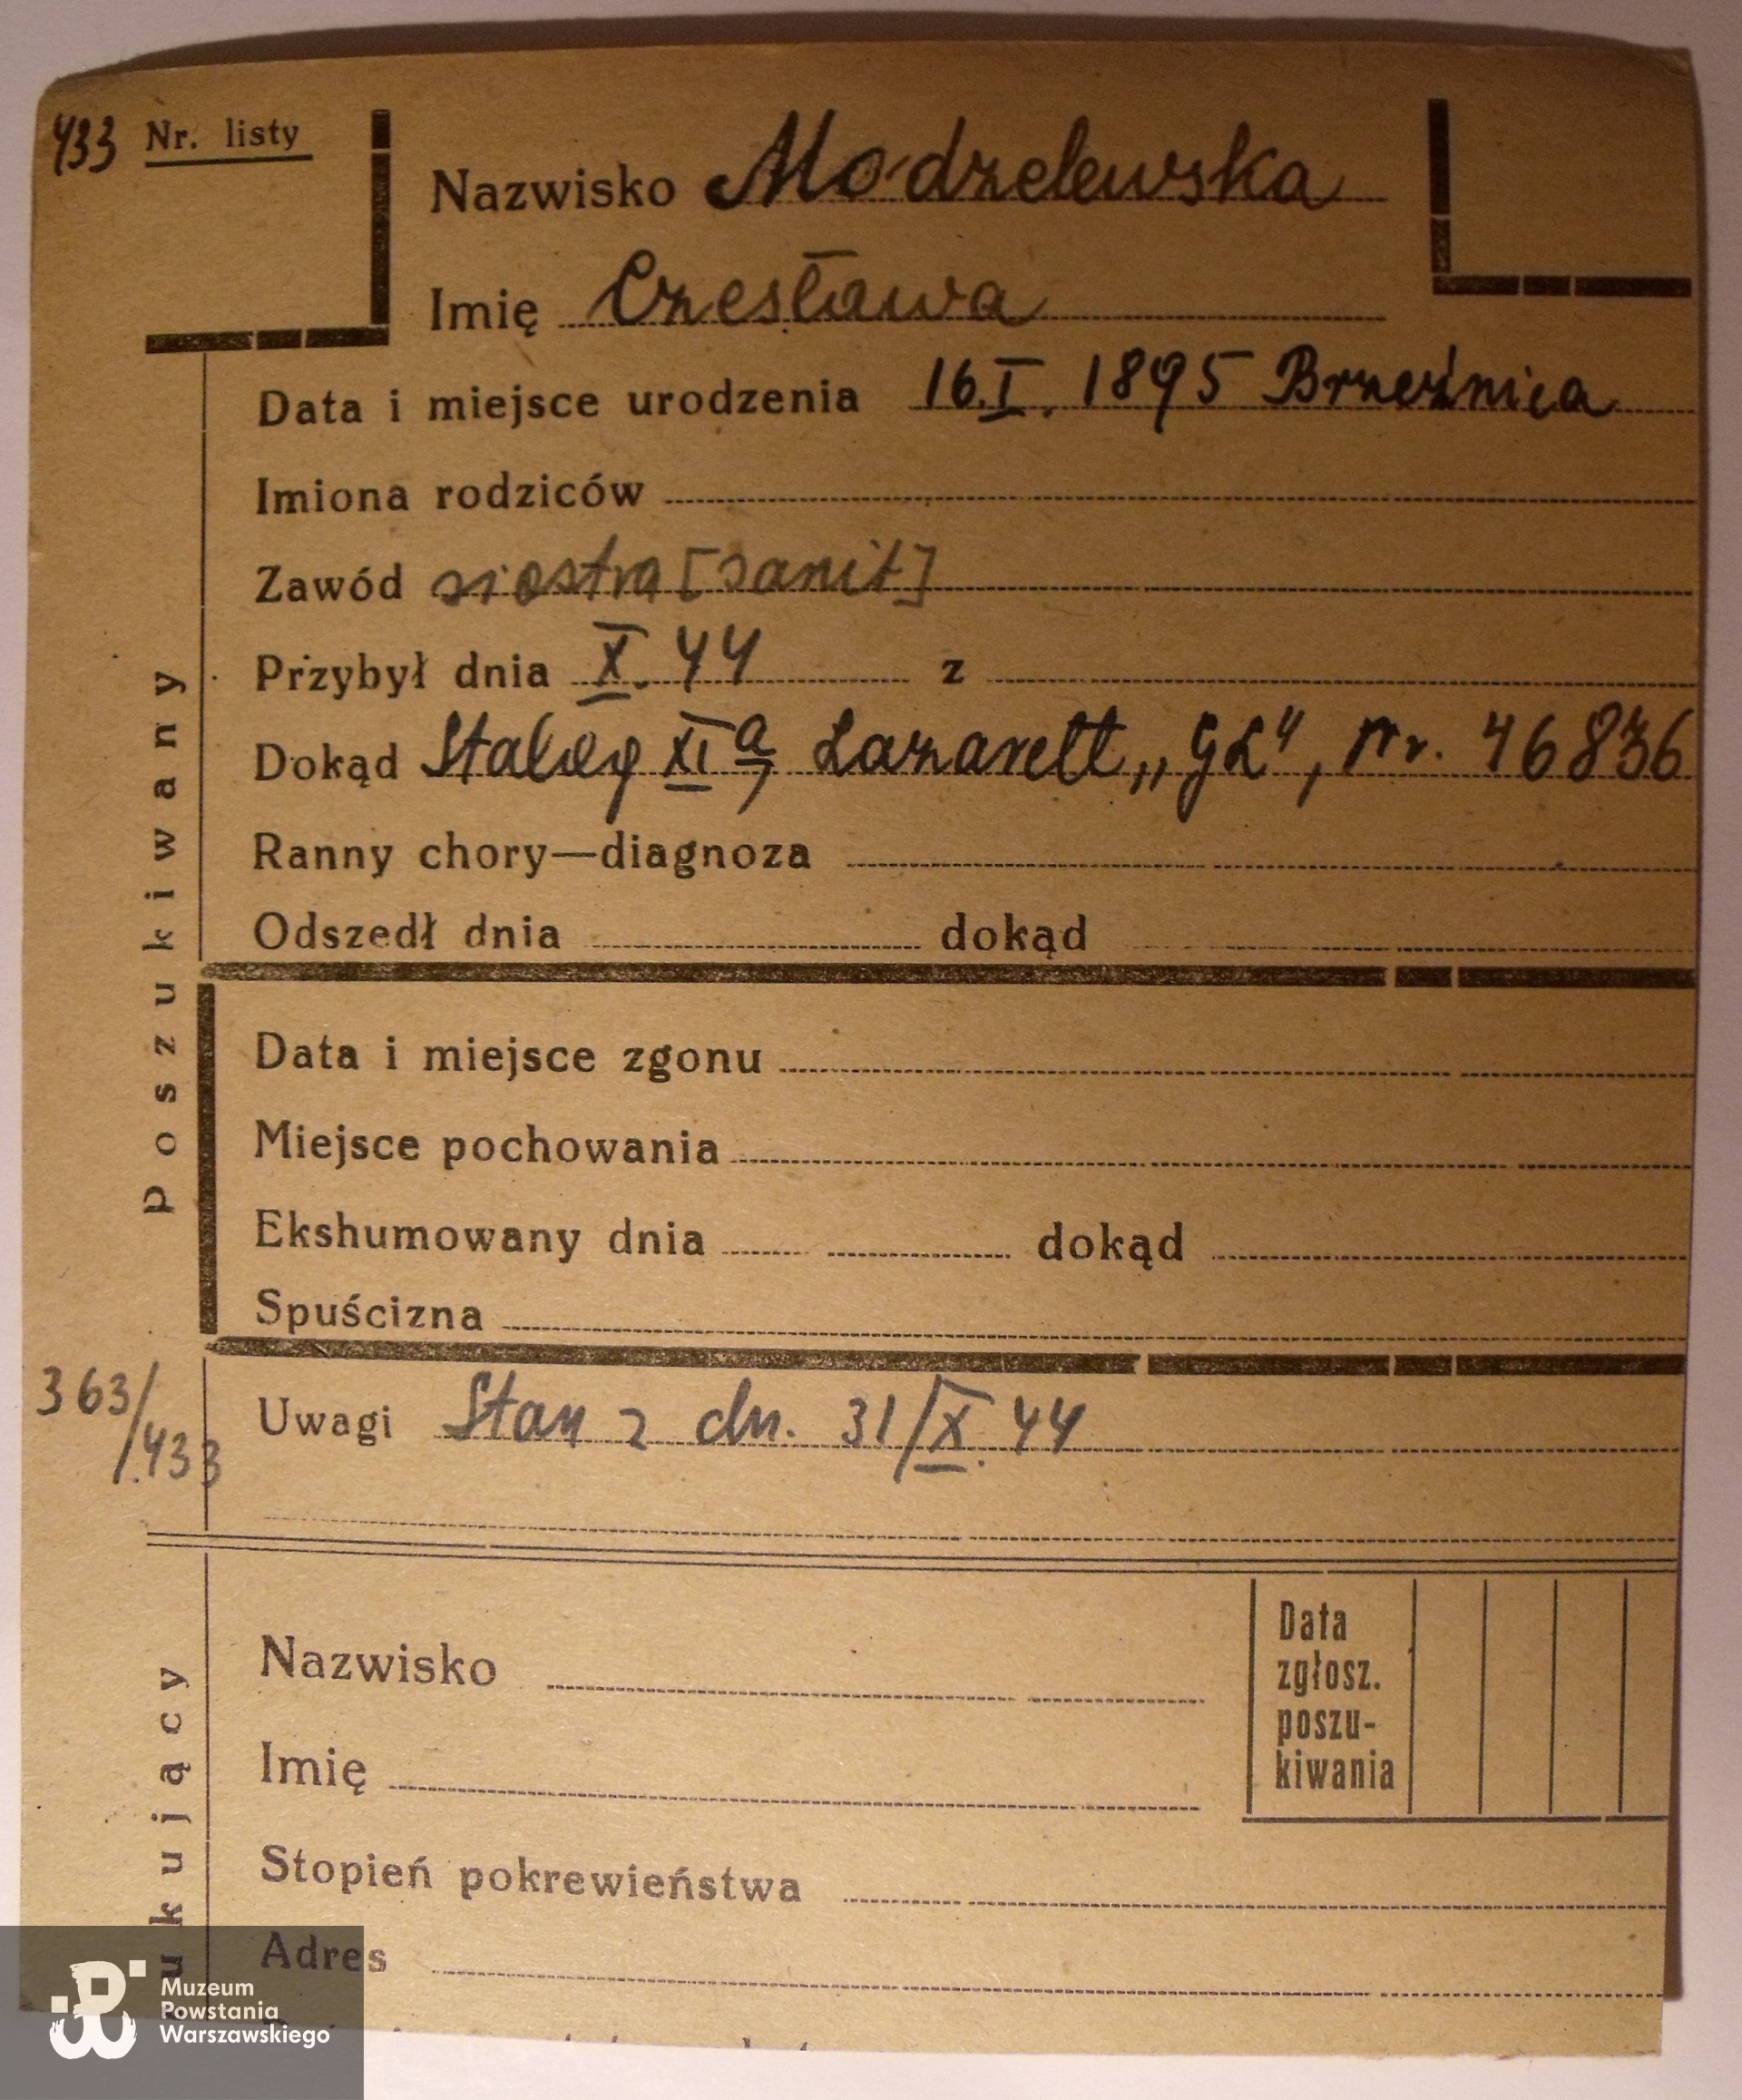 433 Nr. listy
Nazwisko Modzelewska
Imię Czesława
Data i miejsce urodzenia 16.I. 1895 Brzeźnica
Imiona rodziców
Zawód siostra [sanit]
Przybył dnia X. 44 z
Dokąd Stalag XI a, Lazarett „GK", Nr. 46836
Ranny chory—diagnoza
Odszedł dnia dokąd
Data i miejsce zgonu
Miejsce pochowania
Ekshumowany dnia dokąd
Spuścizna
Poszukiwany
363/433
Uwagi Stan z dn. 31/X. 44
Nazwisko
Imię
Data
zgłosz.
poszu-
kiwania
Stopień pokrewieństwa
Adres
ukujący
Muzeum
Powstania
Warszawskiego